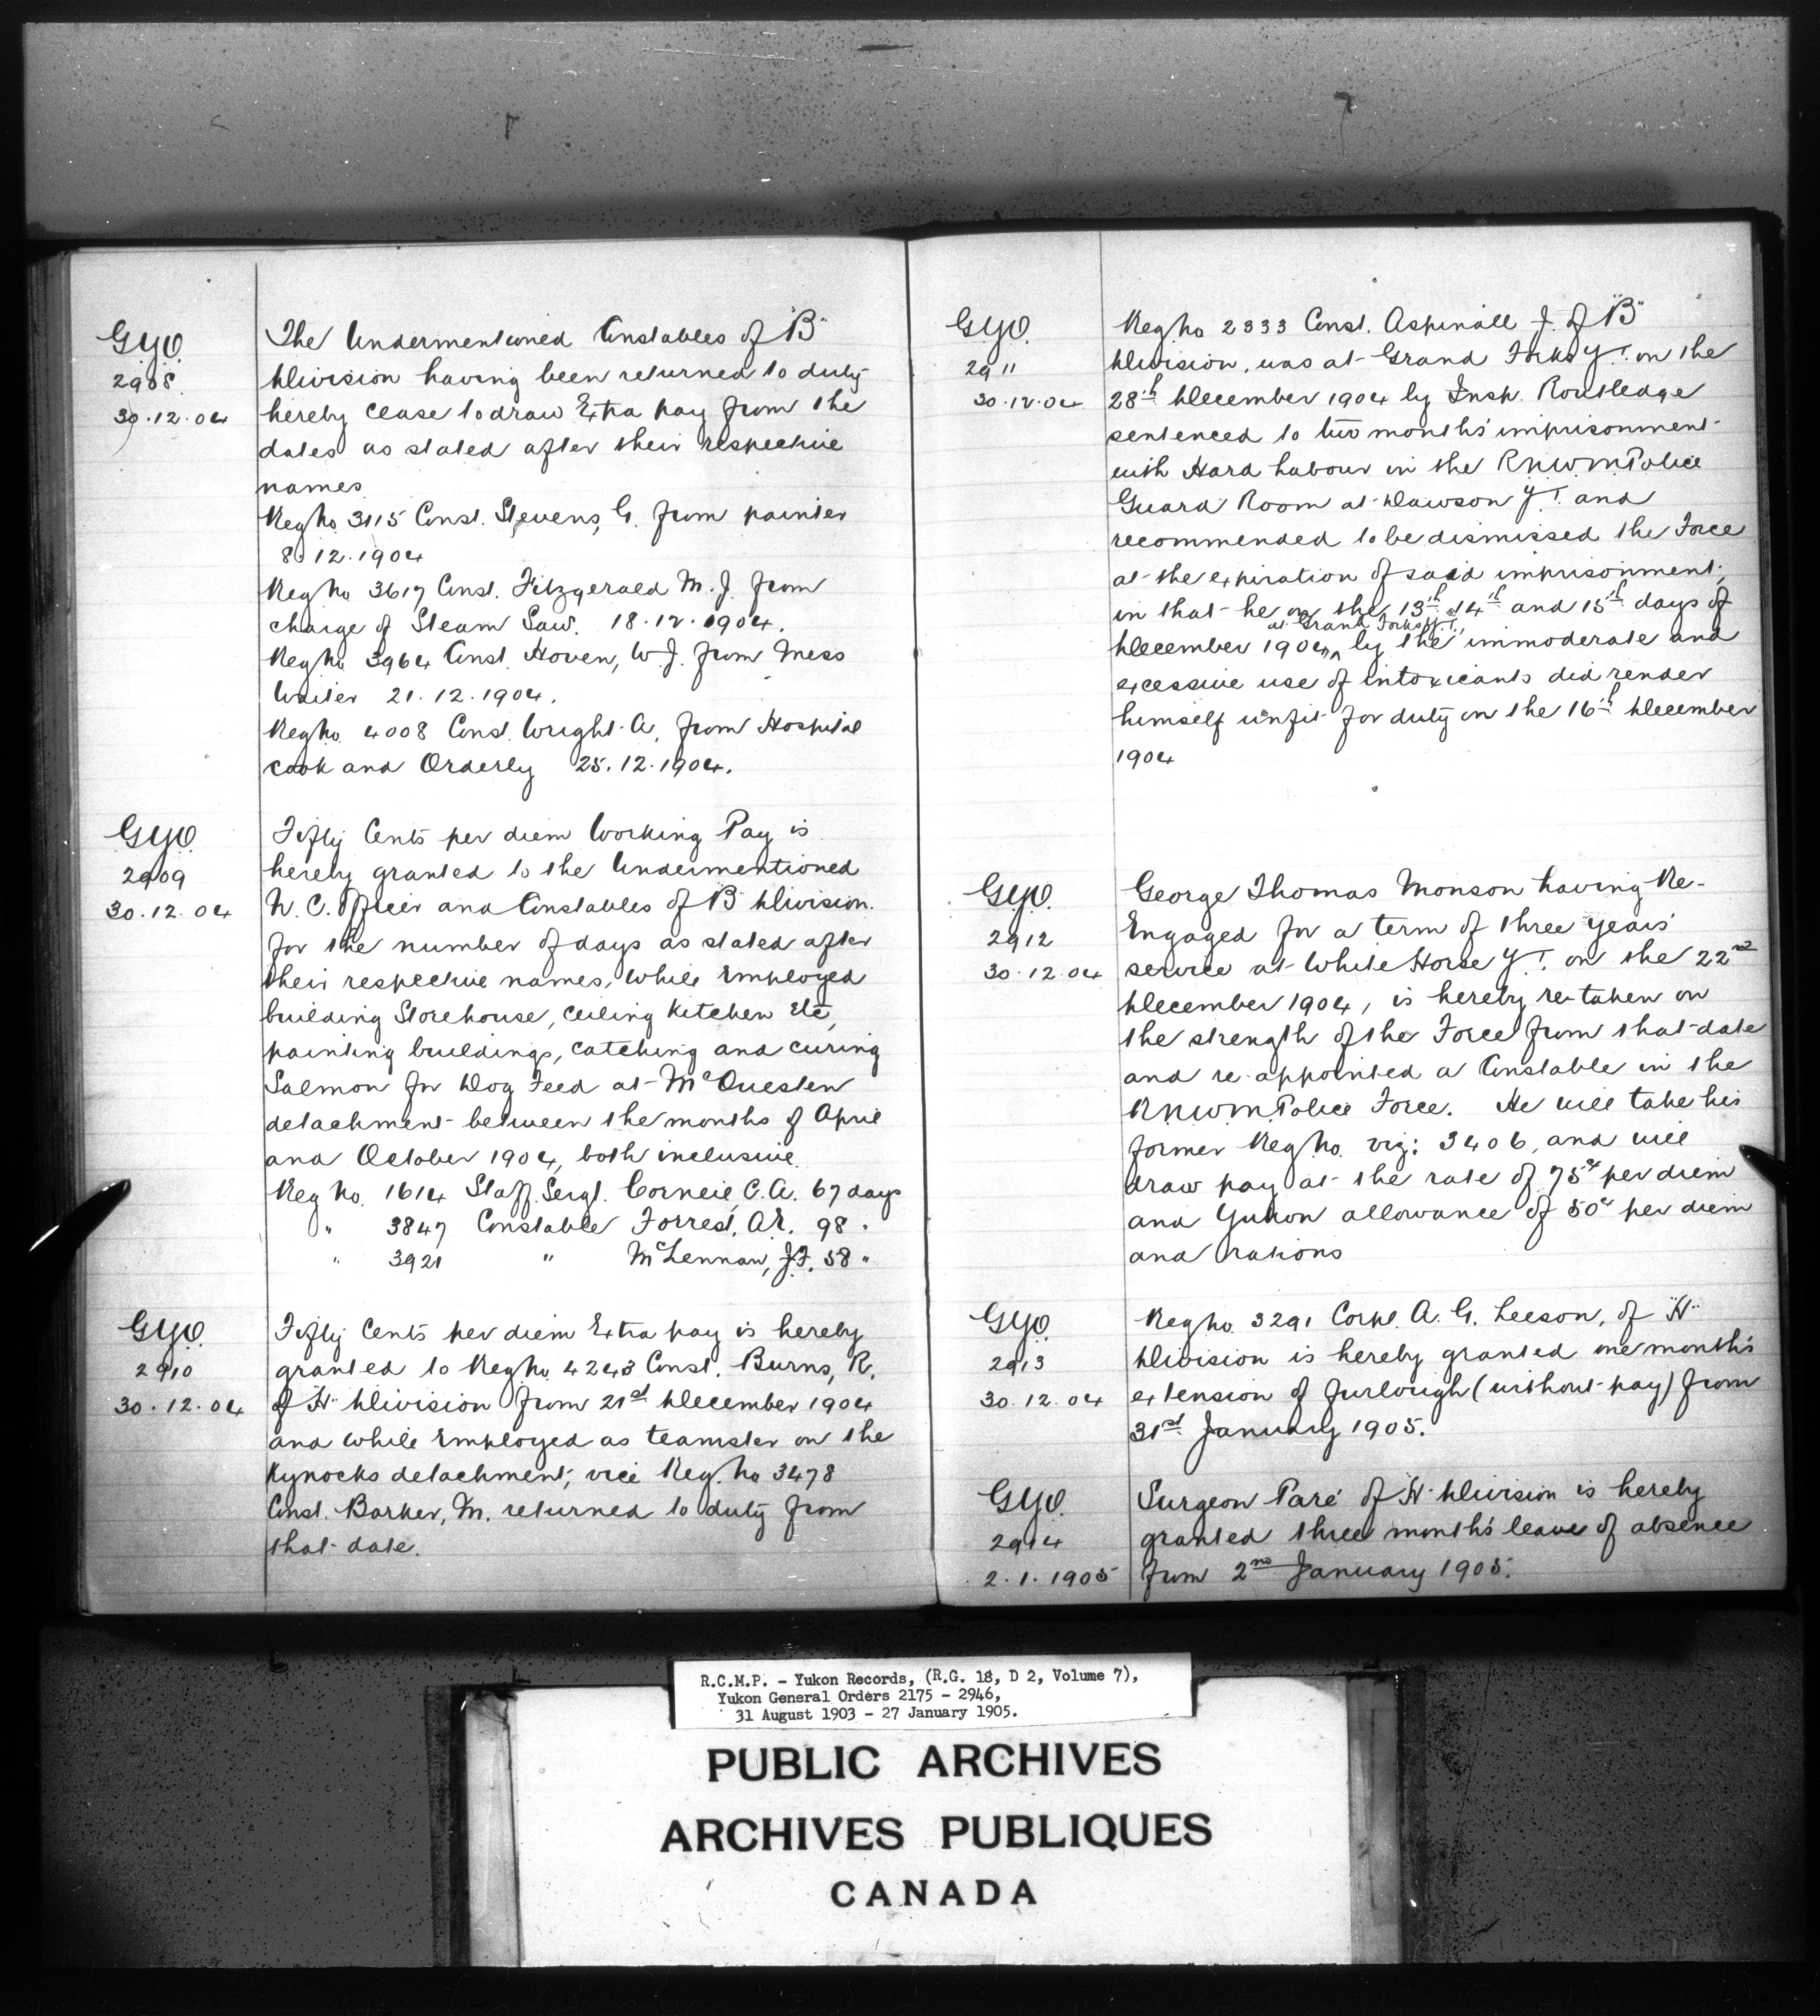 G.Y.O.
2908
30.12.04
The Undermentioned Constables of "B"
Division having been returned to duty
hereby cease to draw Extra pay from the
dates as stated after their respective
names
Reg No 3115 Const. Stevens, G. from painter
8.12.1904
Reg No 3617 Const. Fitzgerald M.J. from
charge of Steam Saw. 18.12.1904.
Reg No 3964 Const. Hoven, W.J. from Mess
Waiter 21.12.1904.
Reg No. 4008 Const. Wright A, from Hospital
cook and Orderly 25.12.1904.
G.Y.O.
2909
30.12.04
Fifty Cents per diem Working Pay is
hereby granted to the Undermentioned
N.C. Officer and Constables of "B" Division.
for the number of days as stated after
their respective names, while Employed
building Storehouse, ceiling Kitchen Etc,
painting buildings, catching and curing
Salmon for Dog Feed at McQuesten
detachment between the months of April
and October 1904, both inclusive.
Reg No. 1614 Staff. Sergt. Corneil, C.A. 67 days
" 3847 Constable Forrest, A.R. 98 "
" 3921 " McLennan, J.F. 58 "
G.Y.O.
2910
30.12.04
Fifty Cents per diem Extra pay is hereby
granted to Reg No 4243 Const. Burns, R.
of "H" Division from 21st December 1904
and while Employed as teamster on the
Kynocks detachment, vice Reg. No 3478
Const. Barker, M. returned to duty from
that date.
G.Y.O.
2911
30.12.04
Reg No 2333 Const. Aspinall J. of "B"
Division, was at Grand Forks Y.T. on the
28th December 1904 by Insp. Routledge
sentenced to two months' imprisonment
with Hard Labour in the R.N.W.M. Police
Guard Room at Dawson Y.T. and
recommended to be dismissed the Force
at the expiration of said imprisonment,
in that he on the 13th 14th and 15th days of
at Grand Forks Y.T.,
December 1904, by the immoderate and
excessive use of intoxicants did render
himself unfit for duty on the 16th December
1904
G.Y.O.
2912
30.12.04
George Thomas Monson having Re-
Engaged for a term of three years'
service at White Horse Y.T. on the 22nd
December 1904, is hereby re-taken on
the strength of the Force from that date
and re-appointed a Constable in the
R.N.W.M. Police Force. He will take his
former Reg No. viz: 3406, and will
draw pay at the rate of 75cts per diem
and Yukon allowance of 50c per diem
and rations
G.Y.O.
2913
30.12.04
Reg No. 3291 Corpl. A.G. Leeson, of "H"
Division is hereby granted one month's
extension of furlough (without pay) from
31st January 1905.
G.Y.O.
2914
2.1.1905
Surgeon Paré of "H" Division is hereby
granted three months' leave of absence
from 2nd January 1905.
R.C.M.P. - Yukon Records, (R.G. 18, D 2, Volume 7),
Yukon General Orders 2175 - 2946,
31 August 1903 - 27 January 1905.
PUBLIC ARCHIVES
ARCHIVES PUBLIQUES
CANADA